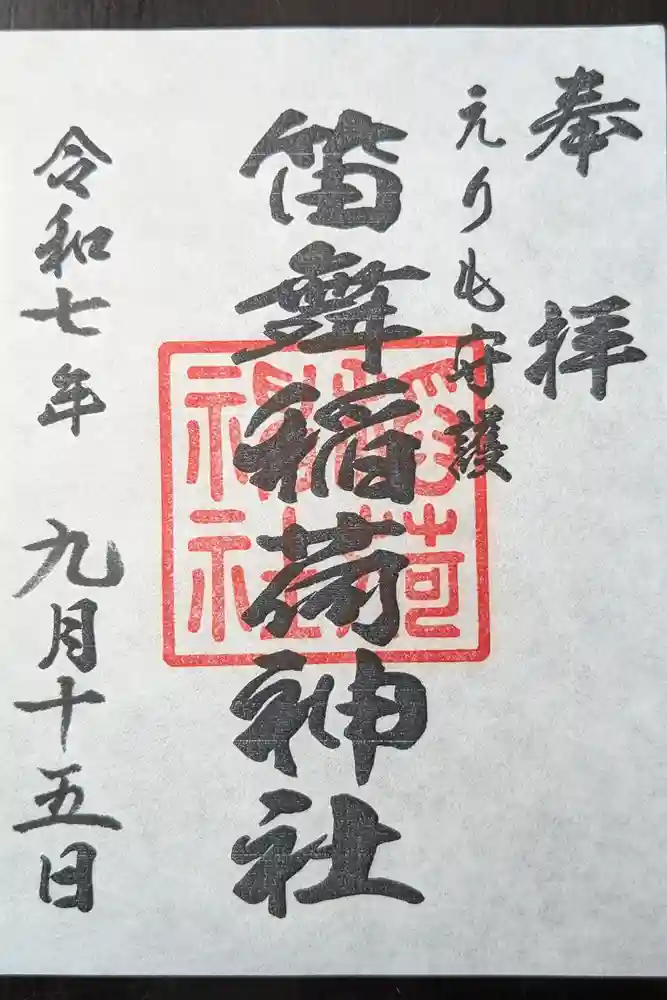 奉拝
えりも守護
笛舞稲荷神社
令和七年 九月十五日